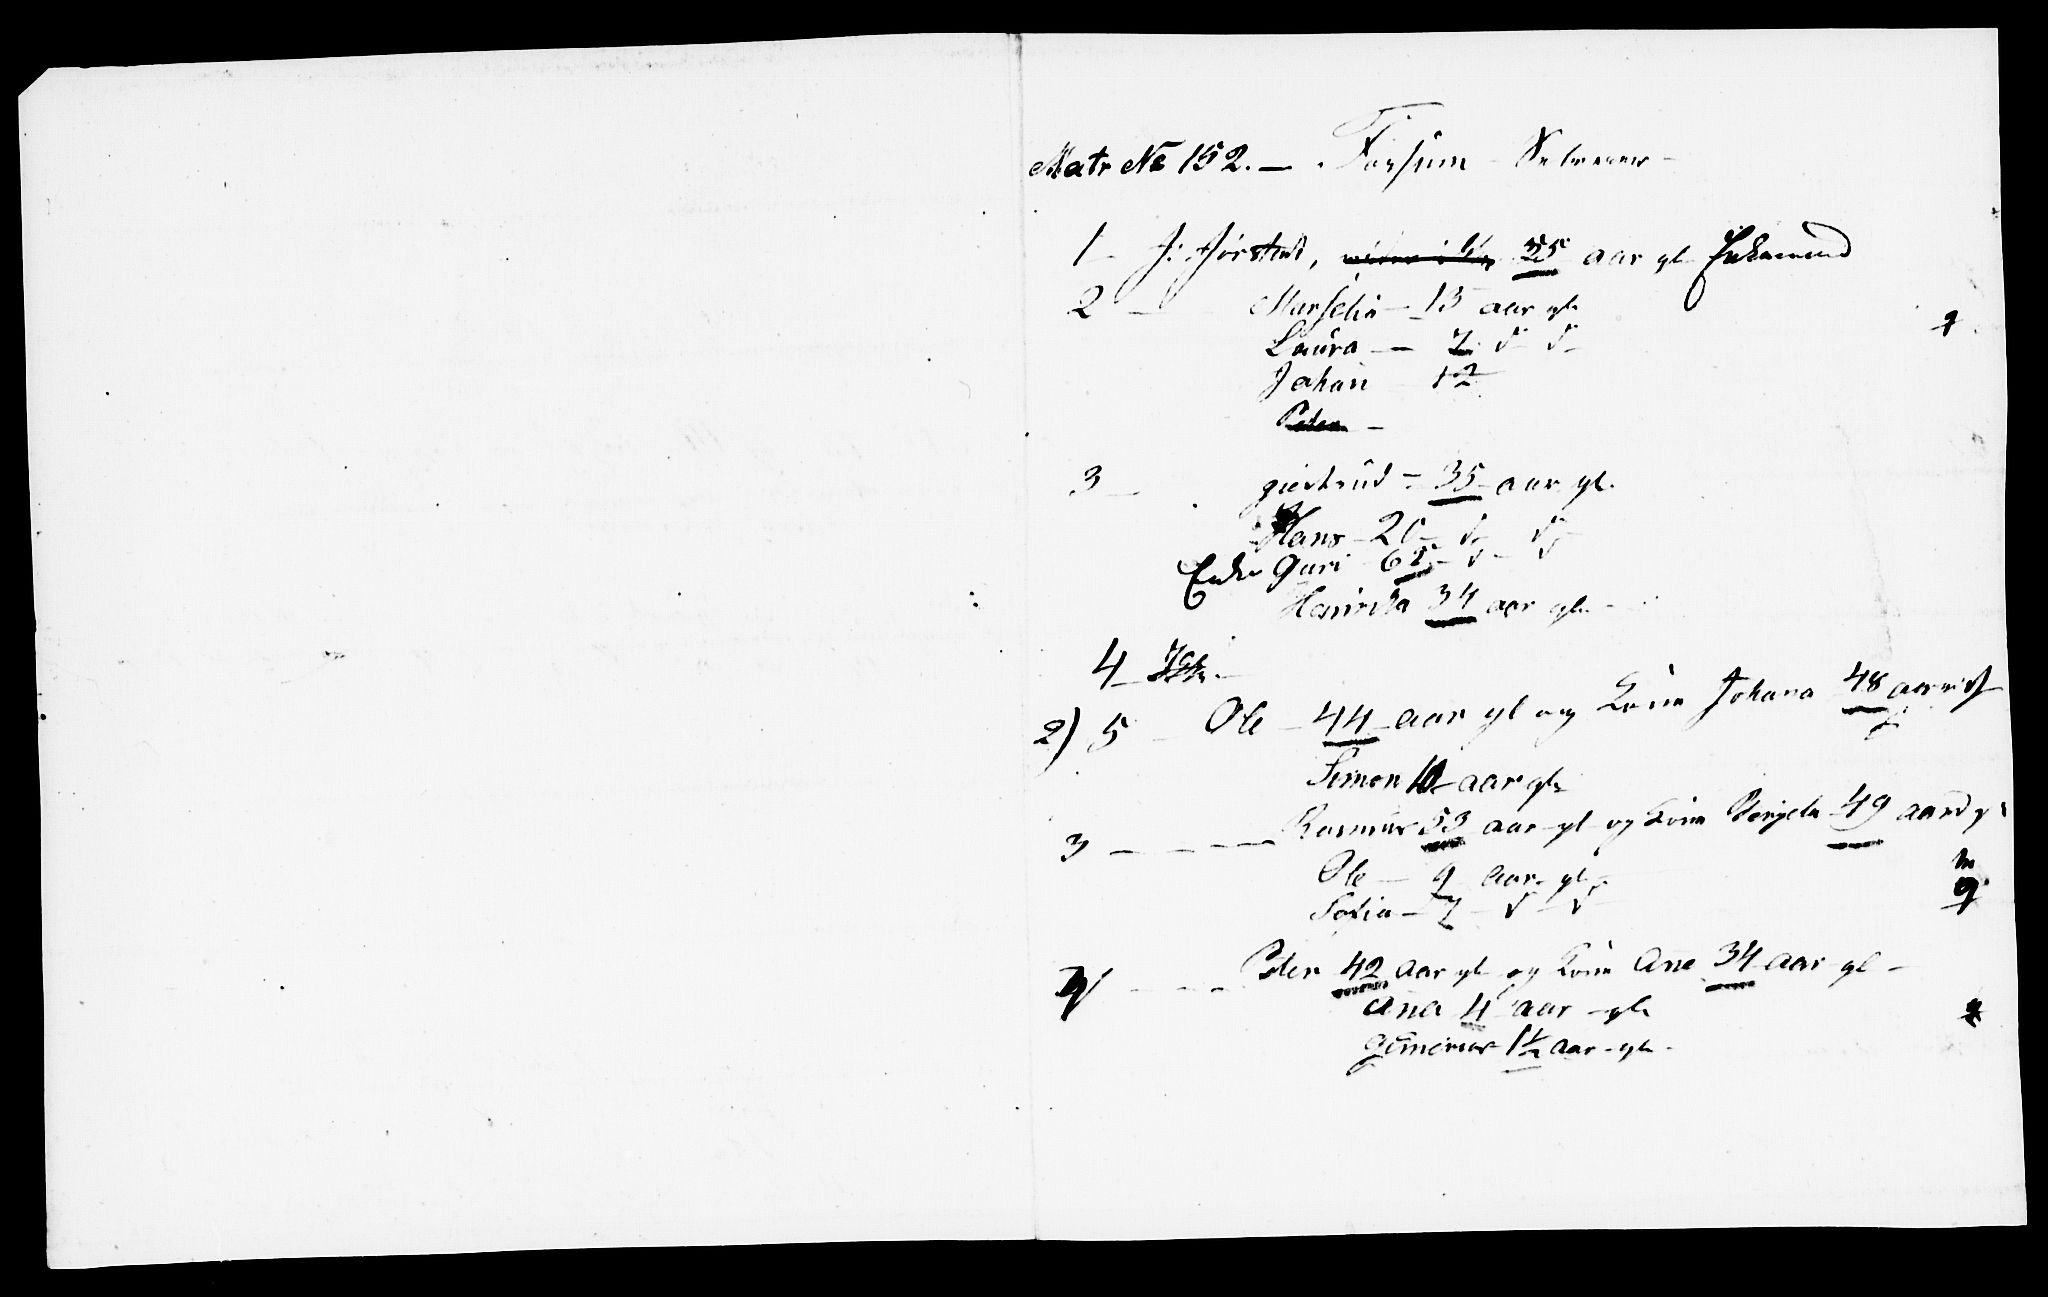 Matr No 152. — Forsum
1 — J: Jörstad, 55 aar gl Enkemand
2 — Marselia — 13 aar gl
Laura — 7 d d
Johan 12
Peter —
3 — giertrud — 35 aar gl.
Hans — 20 — d — d
Enke Guri 65 — d — d
Henrika 34 aar gl. —
4 —
2) 5 — Ole — 44 — aar gl og Kone Johana 48 aar
Simon 10 aar gl
3 — — — — Rasmus 53 aar gl og Kone 49 aar
Ole — 9 aar gl
Sofia — 7 — d — d
4 — — — Peter 42 aar gl og Kone Ane 34 aar gl —
Ana 4 aar gl
1½ aar gl.